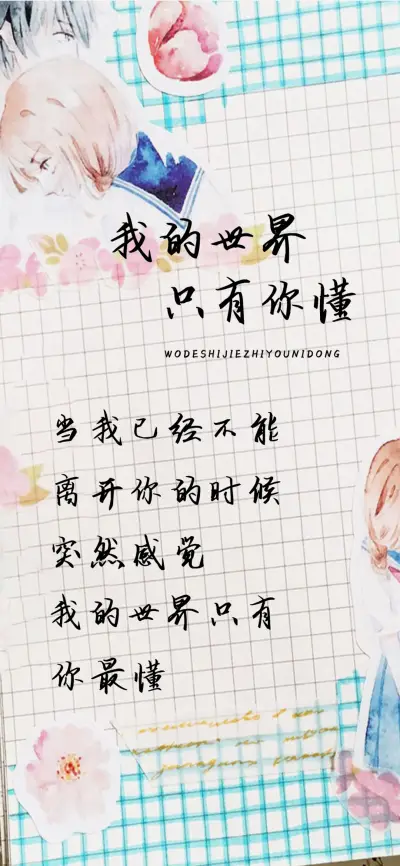 我的世界
只有你懂
WODESHIJIEZHIYOUNIDONG
当我已经不能
离开你的时候
突然感觉
我的世界只有
你最懂